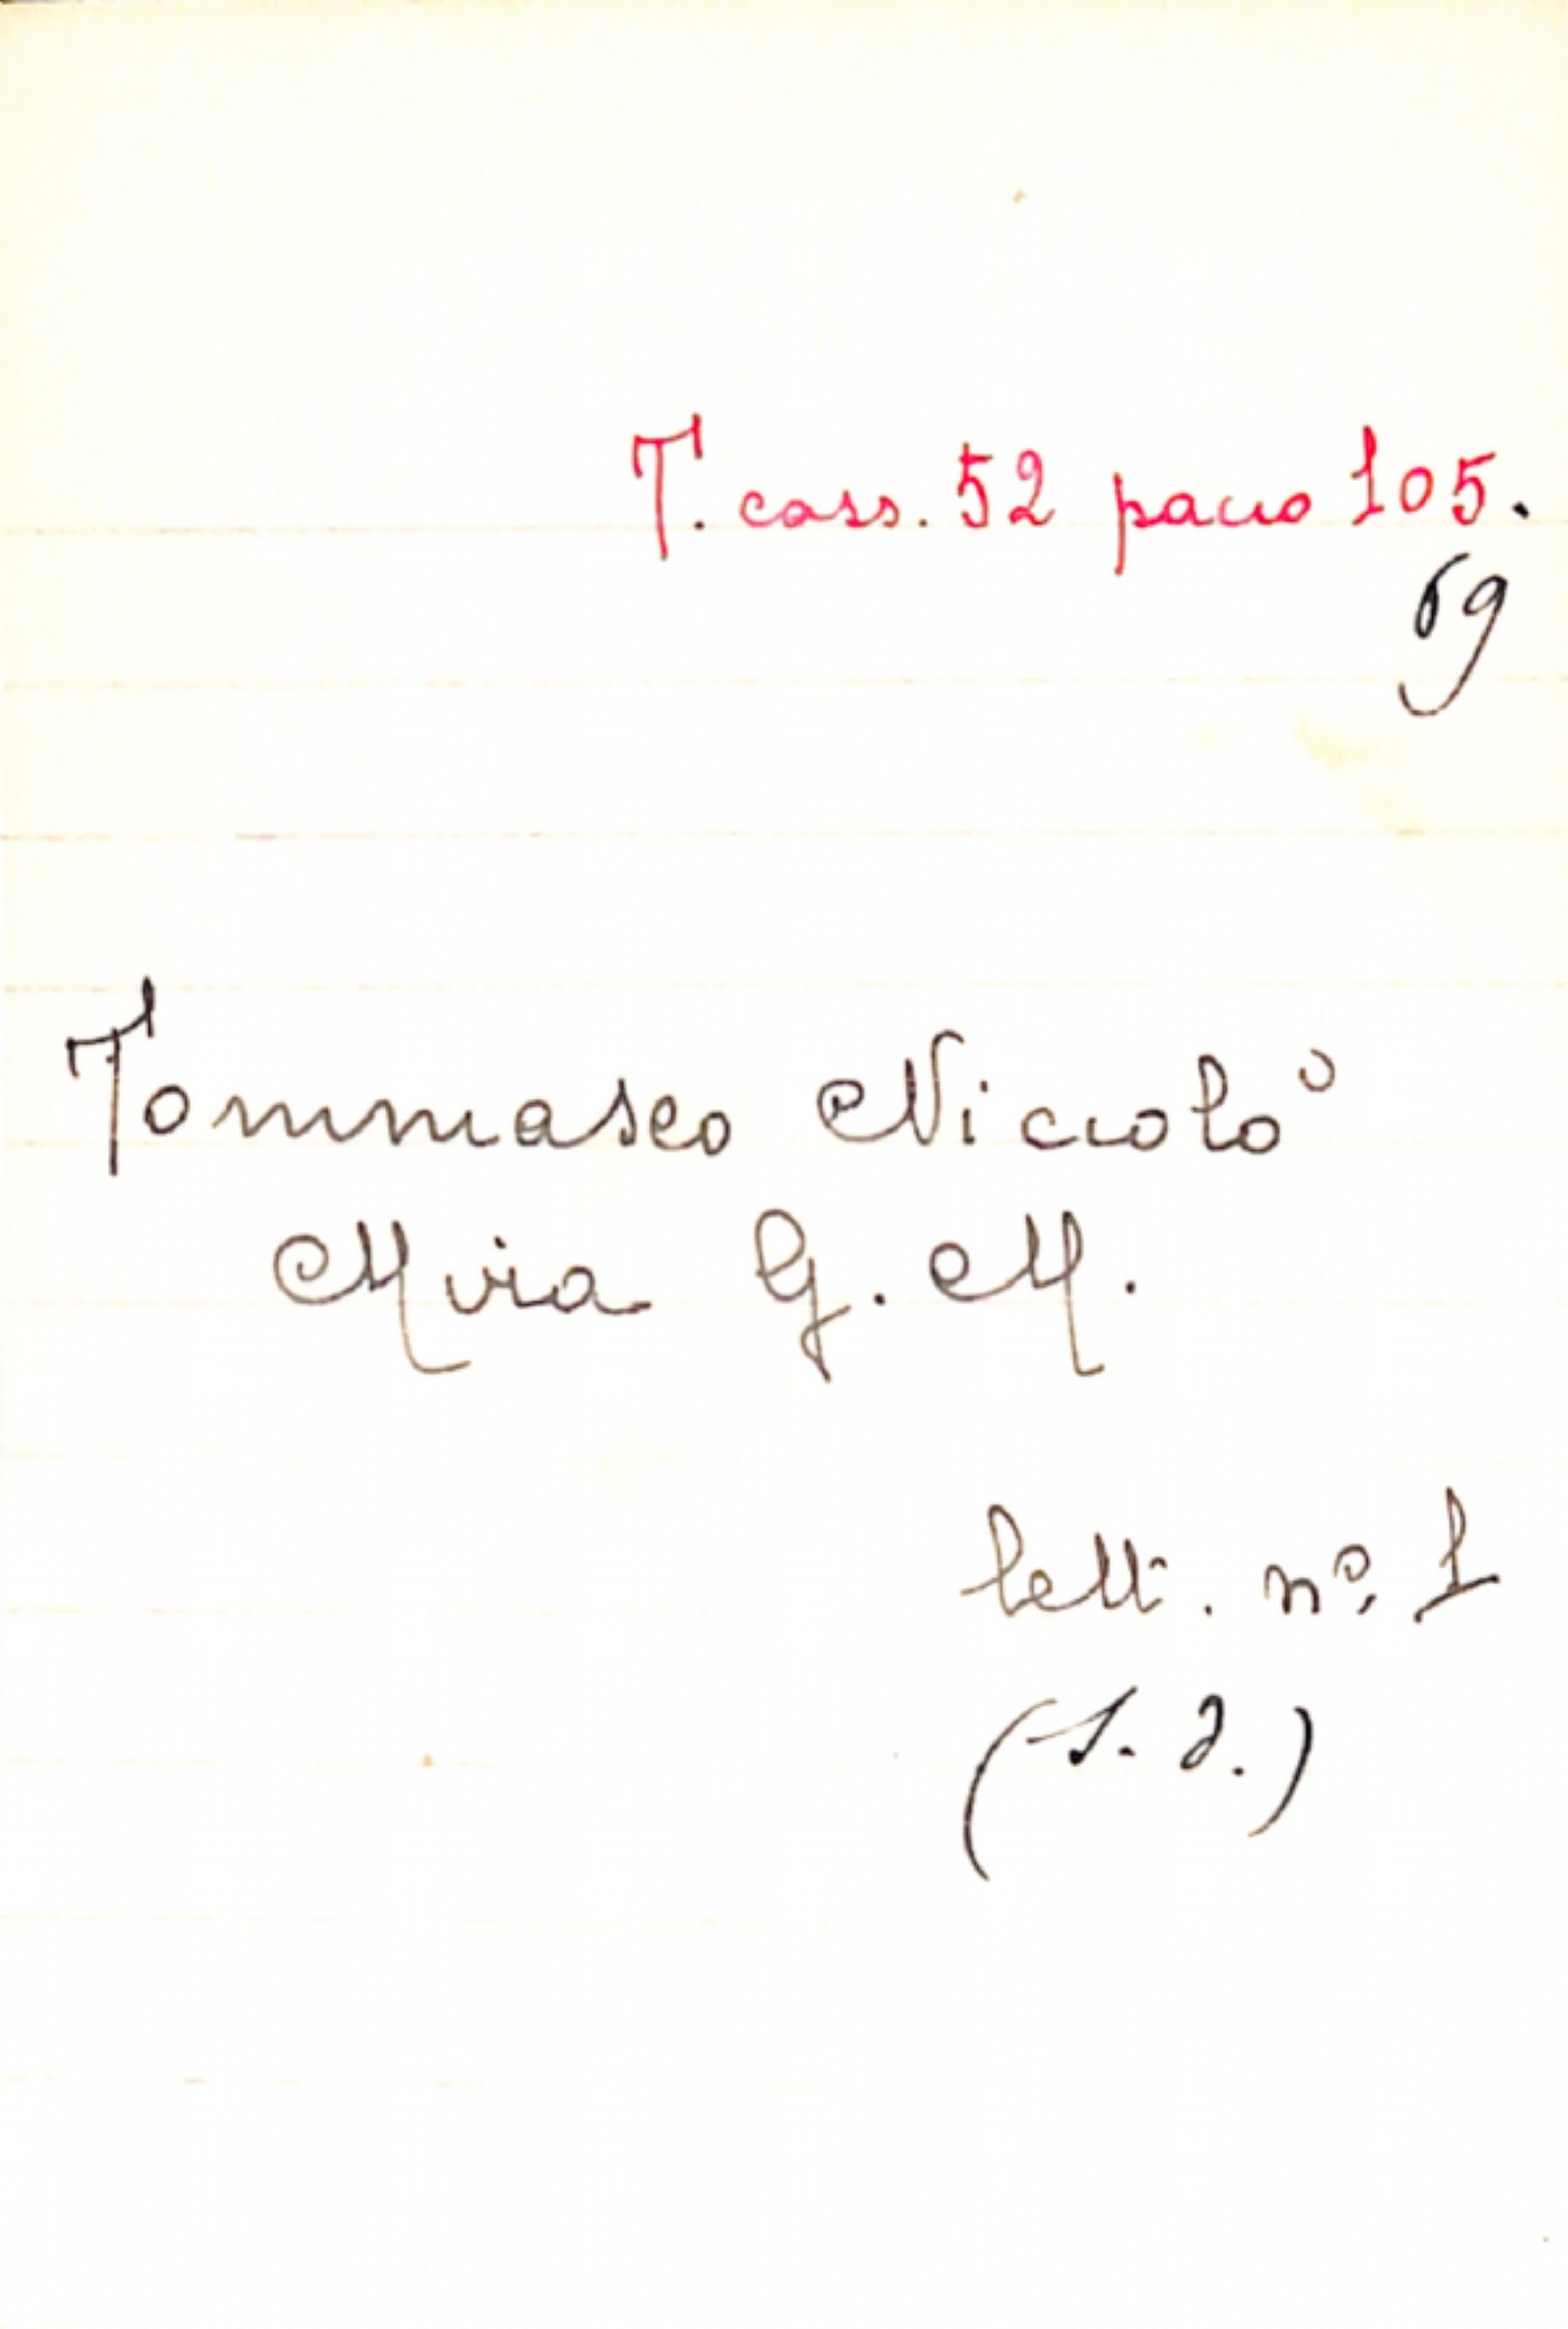 T. cass. 52 pacco 105.
69
Tommaseo Niccolò
Mira G. M.
lett. nº. 1
(s. d.)